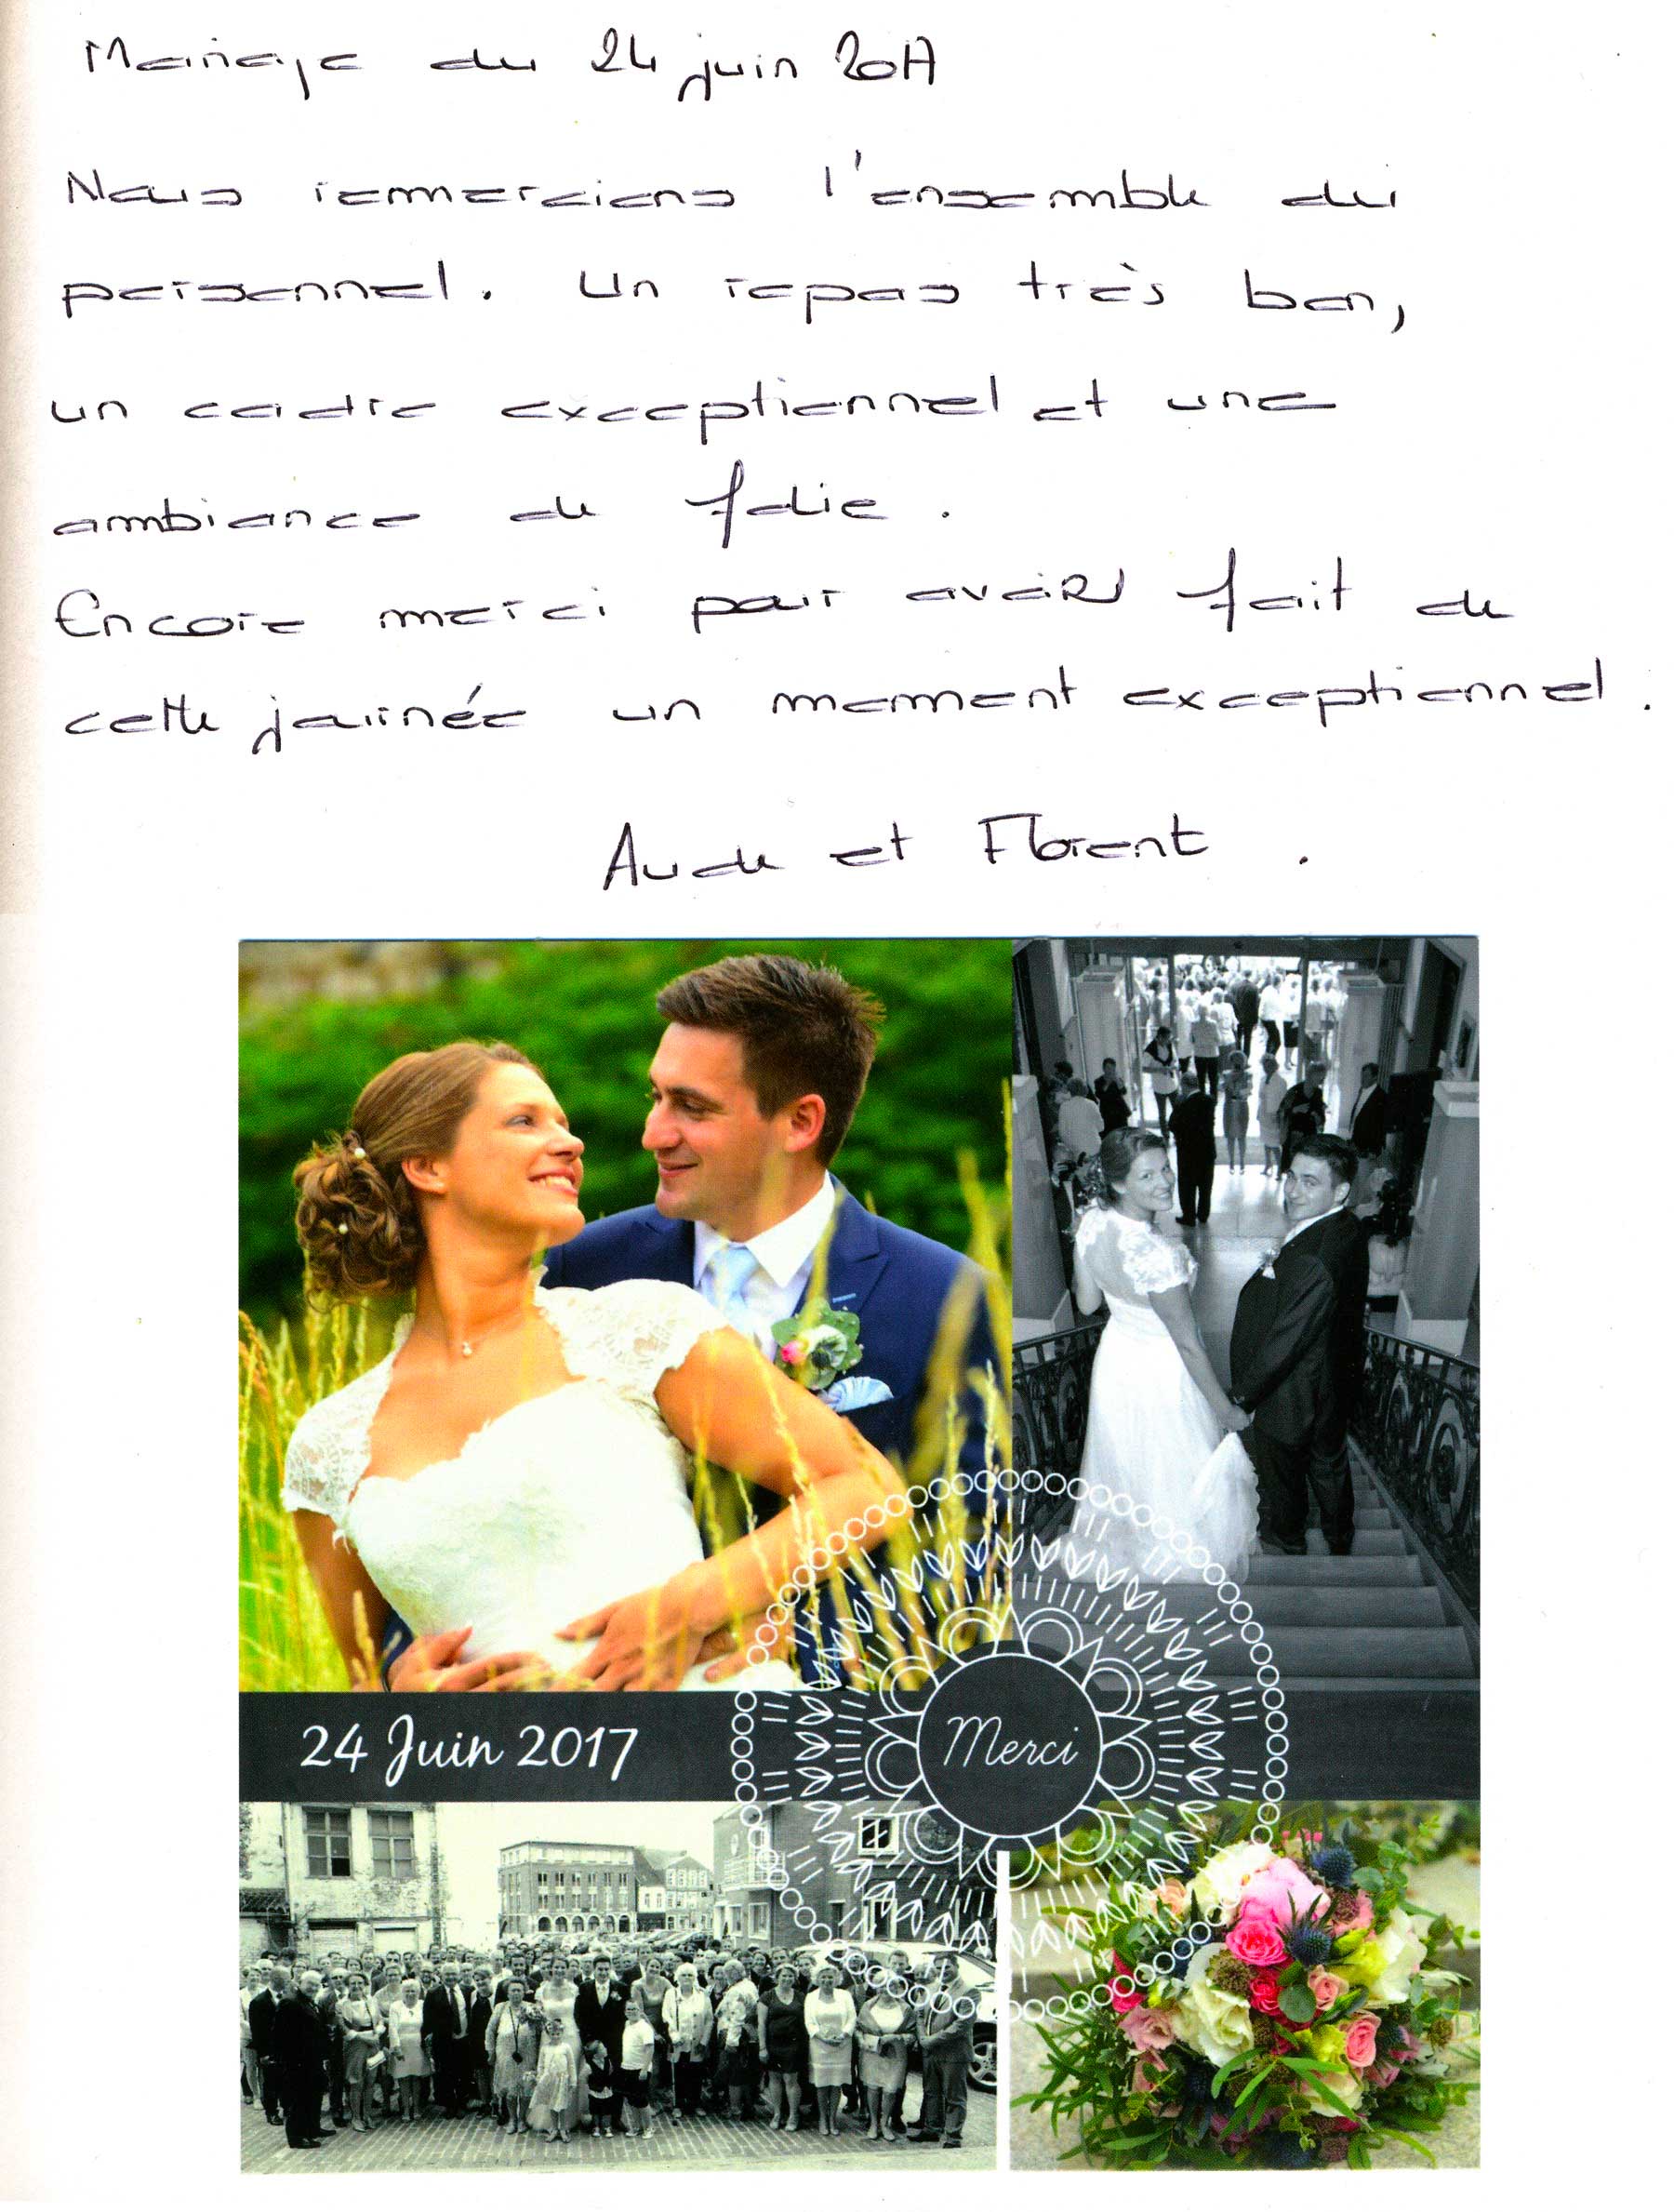 Mariage du 24 juin 2017
Nous remercions l'ensemble du
personnel. Un repas très bon,
un cadre exceptionnel et une
ambiance de folie.
Encore merci pour avoir fait de
cette journée un moment exceptionnel.
Aude et Florent.
24 Juin 2017
Merci